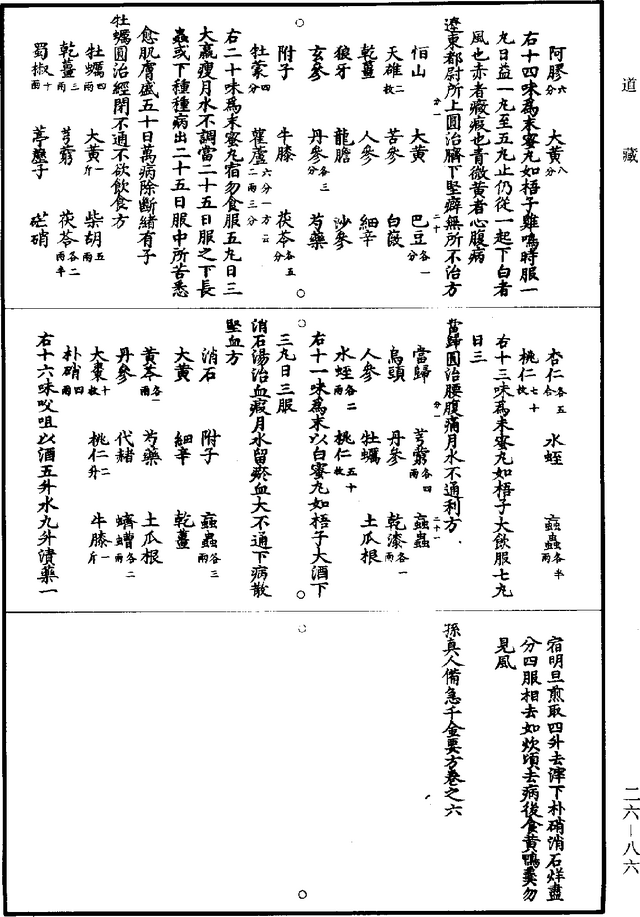 道藏
阿膠六分 大黃八分
右十四味為末蜜丸如梧子雞鳴時服一
丸日益一丸至五丸止仍從一起下白者
風也赤者癥瘕也青微黃者心腹病
遼東都尉所上圓治臍下堅癖無所不治方
恒山 大黃 巴豆各一分
天雄二枚 苦參 白薇
乾薑 人參 細辛
狼牙 龍膽 沙參
玄參 丹參各三分 芍藥
附子 牛膝 茯苓各五分
牡蒙四分 雚蘆六分一方云二兩三分
右二十味為末蜜丸宿勿食服五丸日三
大羸瘦月水不調當二十五日服之下長
蟲或下種種病出二十五日服中所苦悉
愈肌膚盛五十日萬病除斷緒有子
牡蠣圓治經閉不通不欲飲食方
牡蠣四兩 大黃一斤 柴胡五兩
乾薑三兩 芎藭 茯苓各二兩半
蜀椒十兩 葶藶子 芒硝
杏仁各五合 水蛭 䖟蟲各半兩
桃仁七十枚
右十三味為末蜜丸如梧子大飲服七丸
日三
當歸圓治腰腹痛月水不通利方
當歸 芎藭各四兩 䖟蟲
烏頭 丹參 乾漆各一兩
人參 牡蠣 土瓜根
水蛭各二兩 桃仁五十枚
右十一味為末以白蜜丸如梧子大酒下
三丸日三服
消石湯治血瘕月水留瘀血大不通下病散
堅血方
消石 附子 䖟蟲各三兩
大黃 細辛 乾薑
黃芩各一兩 芍藥 土瓜根
丹參 代赭 蠐螬各二兩
大棗十枚 桃仁二升 牛膝一斤
朴硝四兩
右十六味㕮咀以酒五升水九升漬藥一
宿明旦煎取四升去滓下朴硝消石烊盡
分四服相去如炊頃去病後食黃鴨羹勿
見風
孫真人備急千金要方卷之六
二六—八六